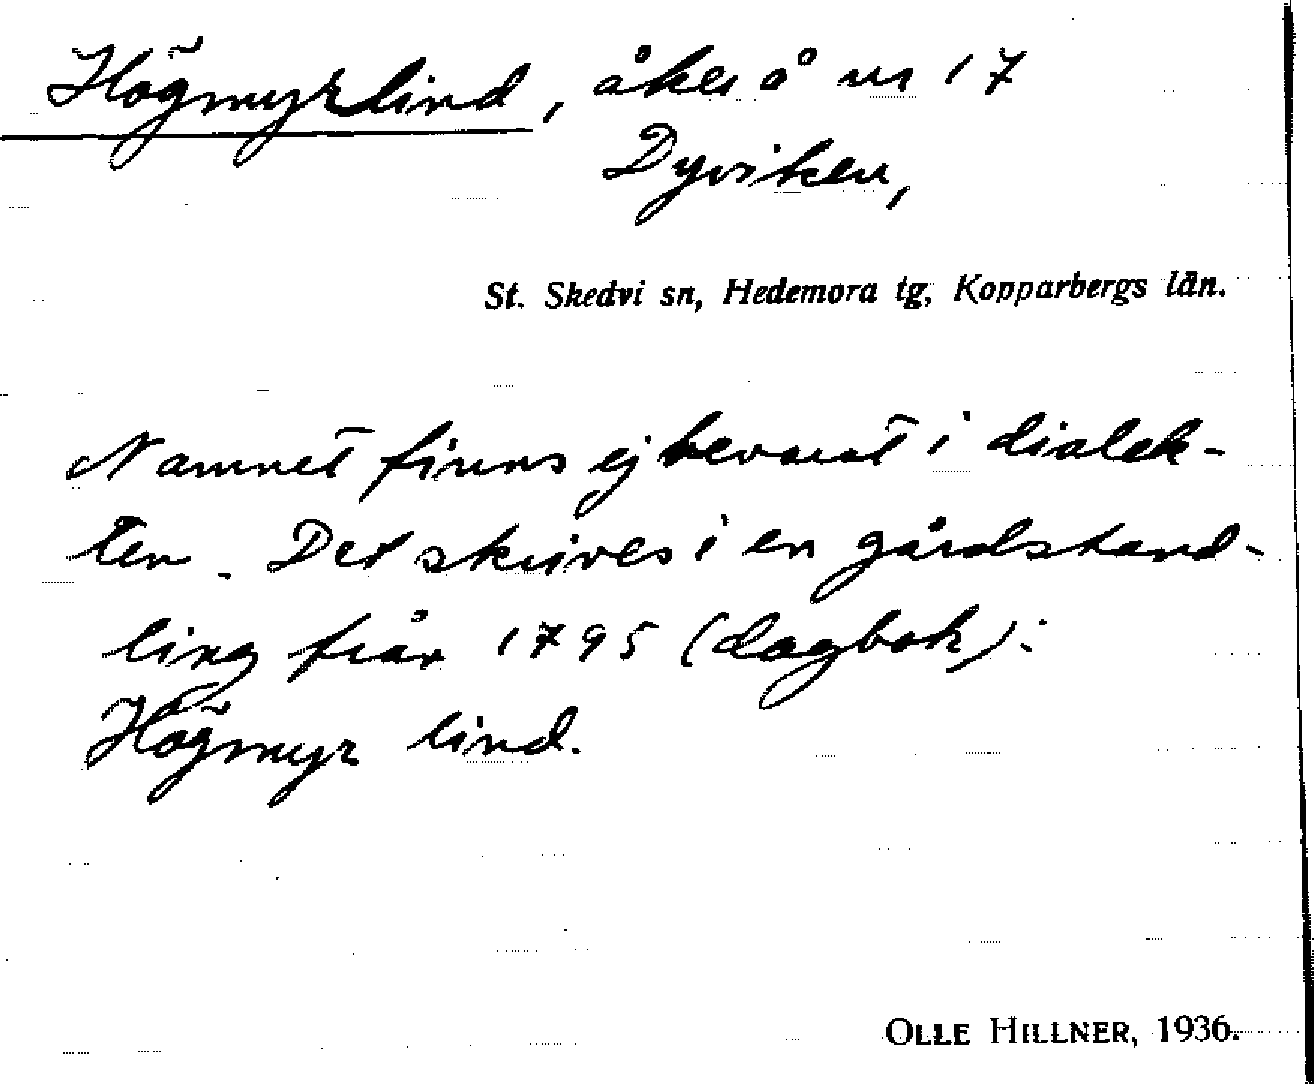 Högmyrlind, åker å nr 17
Dyviken,
St. Skedvi sn, Hedemora tg, Kopparbergs län.
Namnet finns ej bevarat i dialek-
ten. Det skrives i en gårdshand-
ling från 1795 (dagbok):
Högmyr lind.
OLLE HILLNER, 1936.